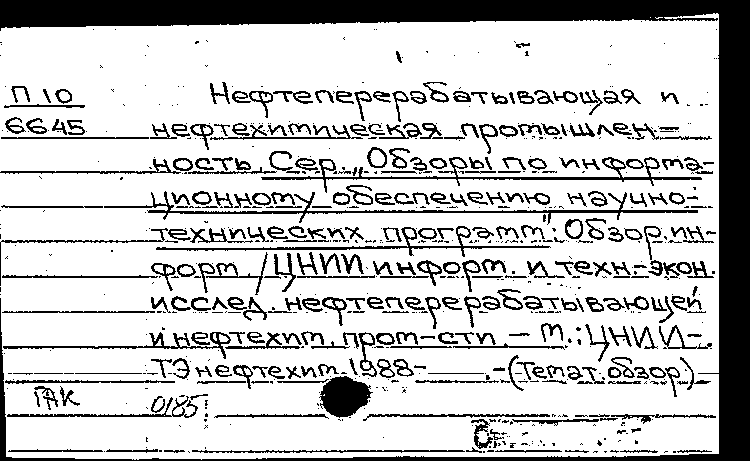 П 10
6645
Нефтеперерабатывающая и
нефтехимическая промышлен=
ность. Сер. „Обзоры по информа-
ционному обеспечению научно-
технических программ": Обзор. ин-
форм. / ЦНИИ информ. и техн.-экон.
исслед. нефтеперерабатывающей
и нефтехим. пром-сти. – М.: ЦНИИ-
ТЭнефтехим. 1988- . -(Темат. обзор).
ГАК
0185